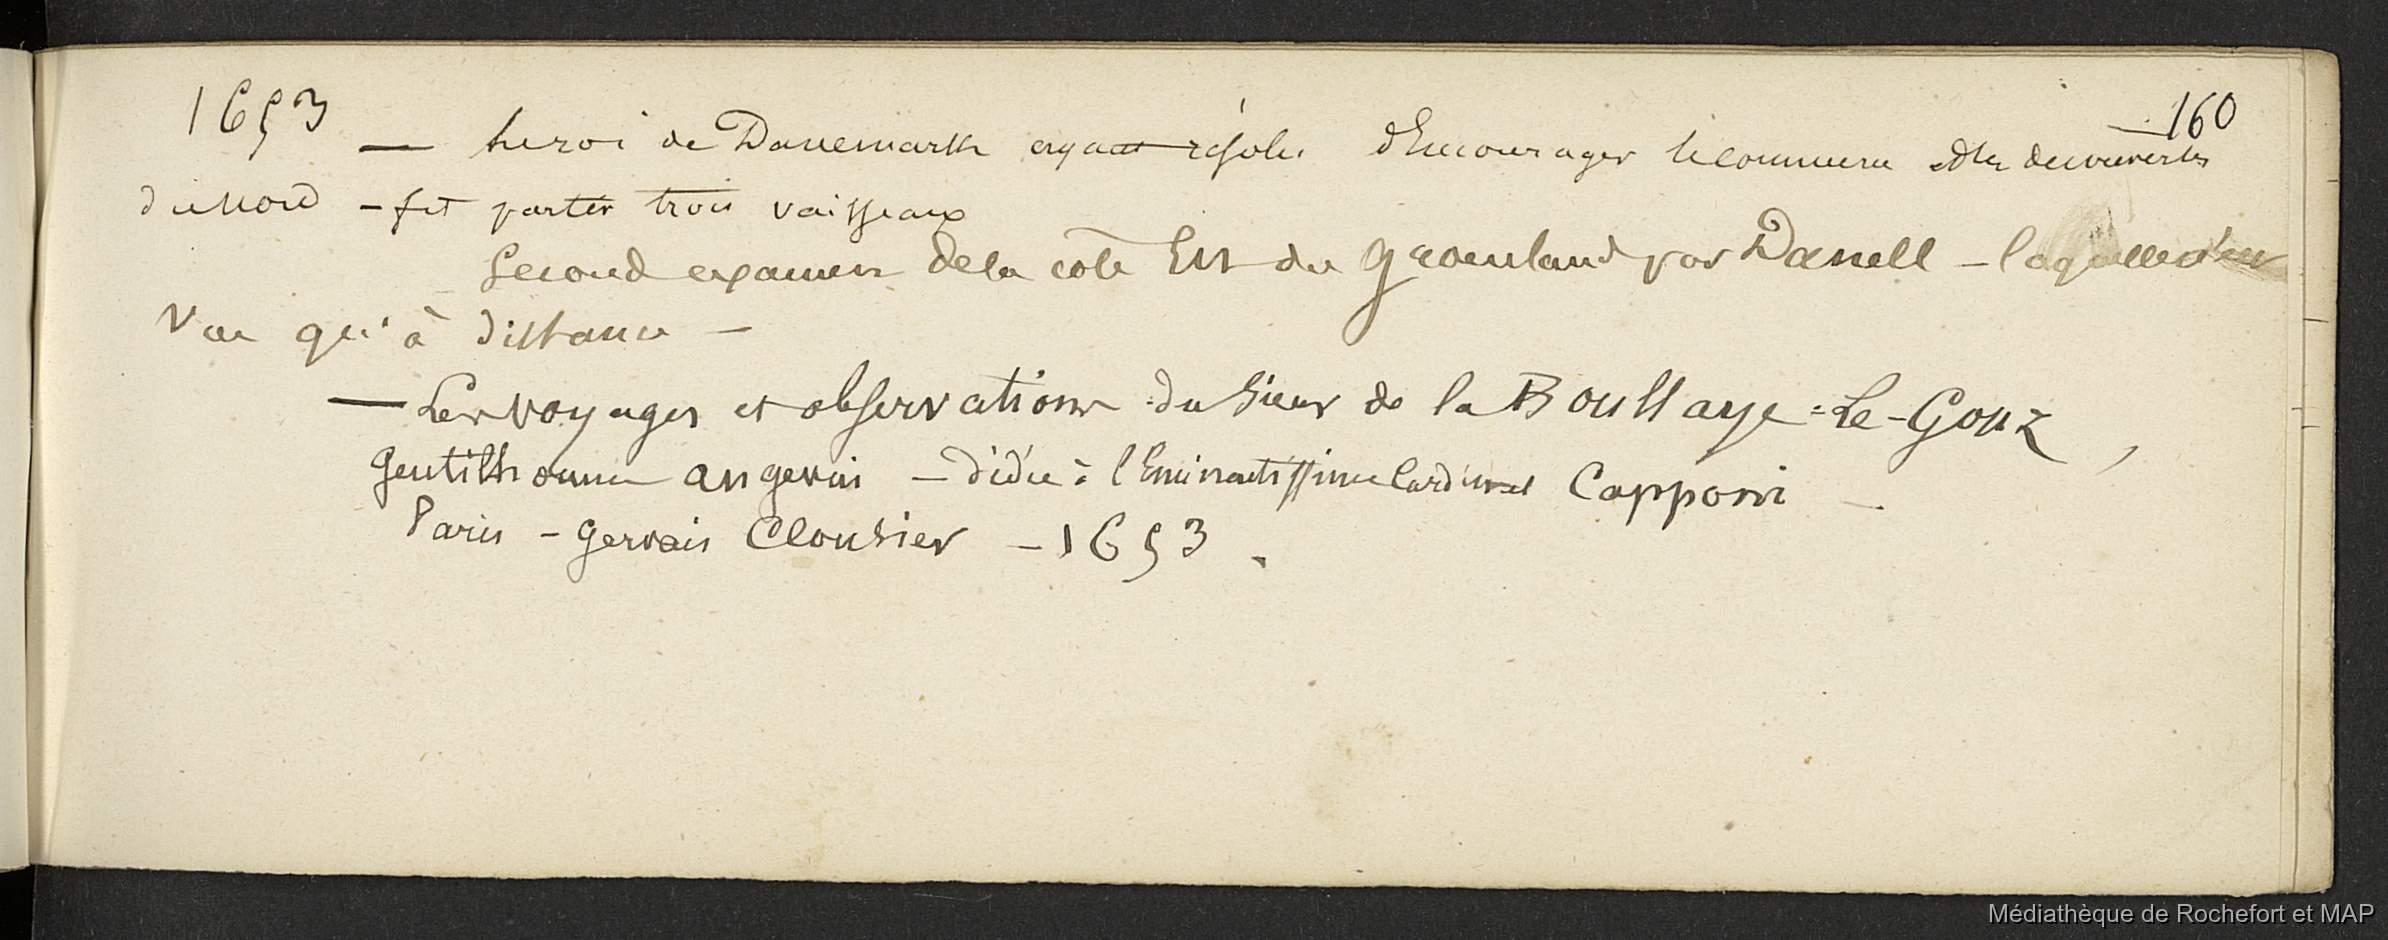 160
1653 — le roi de Danemark ayant résolu d'Encourager le commerce et les decouvertes
du Nord — fit partir trois vaisseaux
Second examen de la côte Est du Groenland par Danell — laquelle n'est
vue qu'à distance —
— Les voyages et observations du Sieur de la Boullaye-Le-Gouz,
gentilhomme angevin — dédié à l'Eminentissime Cardinal Capponi —
Paris — Gervais Clousier — 1653.
Médiathèque de Rochefort et MAP